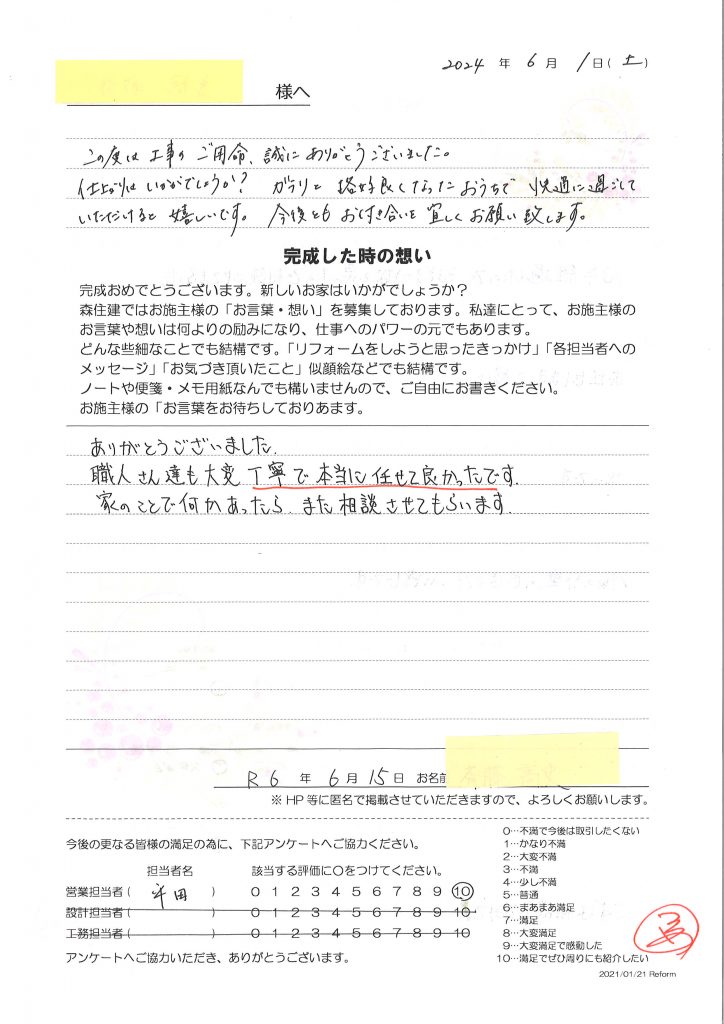 2024 年 6 月 1 日(土)
様へ
この度は工事のご用命、誠にありがとうございました。
仕上がりはいかがでしょうか? ガラリと格好良くなったおうちで 快適に過ごして
いただけると嬉しいです。 今後ともお付き合いを宜しくお願い致します。
完成した時の想い
完成おめでとうございます。新しいお家はいかがでしょうか?
森住建ではお施主様の「お言葉・想い」を募集しております。私達にとって、お施主様の
お言葉や想いは何よりの励みになり、仕事へのパワーの元でもあります。
どんな些細なことでも結構です。「リフォームをしようと思ったきっかけ」「各担当者への
メッセージ」「お気づき頂いたこと」似顔絵などでも結構です。
ノートや便箋・メモ用紙なんでも構いませんので、ご自由にお書きください。
お施主様の「お言葉をお待ちしておりあます。
ありがとうございました.
職人さん達も大変丁寧で本当に任せて良かったです.
家のことで何かあったら、また相談させてもらいます.
R6 年 6 月 15 日 お名前
※ HP 等に匿名で掲載させていただきますので、よろしくお願いします。
今後の更なる皆様の満足の為に、下記アンケートへご協力ください。
担当者名 該当する評価に○をつけてください。
営業担当者( 平田 ) 0 1 2 3 4 5 6 7 8 9 10
設計担当者( ) 0 1 2 3 4 5 6 7 8 9 10
工務担当者( ) 0 1 2 3 4 5 6 7 8 9 10
アンケートへご協力いただき、ありがとうございます。
0…不満で今後は取引したくない
1…かなり不満
2…大変不満
3…不満
4…少し不満
5…普通
6…まあまあ満足
7…満足
8…大変満足
9…大変満足で感動した
10…満足でぜひ周りにも紹介したい
2021/01/21 Reform